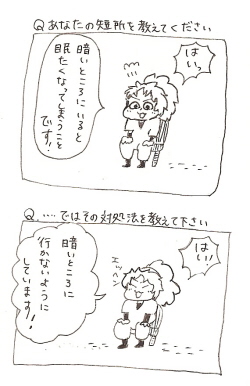 Qあなたの短所を教えてください
はいっ
暗いところにいると
眠たくなってしまうこと
です!
Q.….ではその対処法を教えて下さい
はい!
エッヘン
暗いところに
行かないように
しています!!